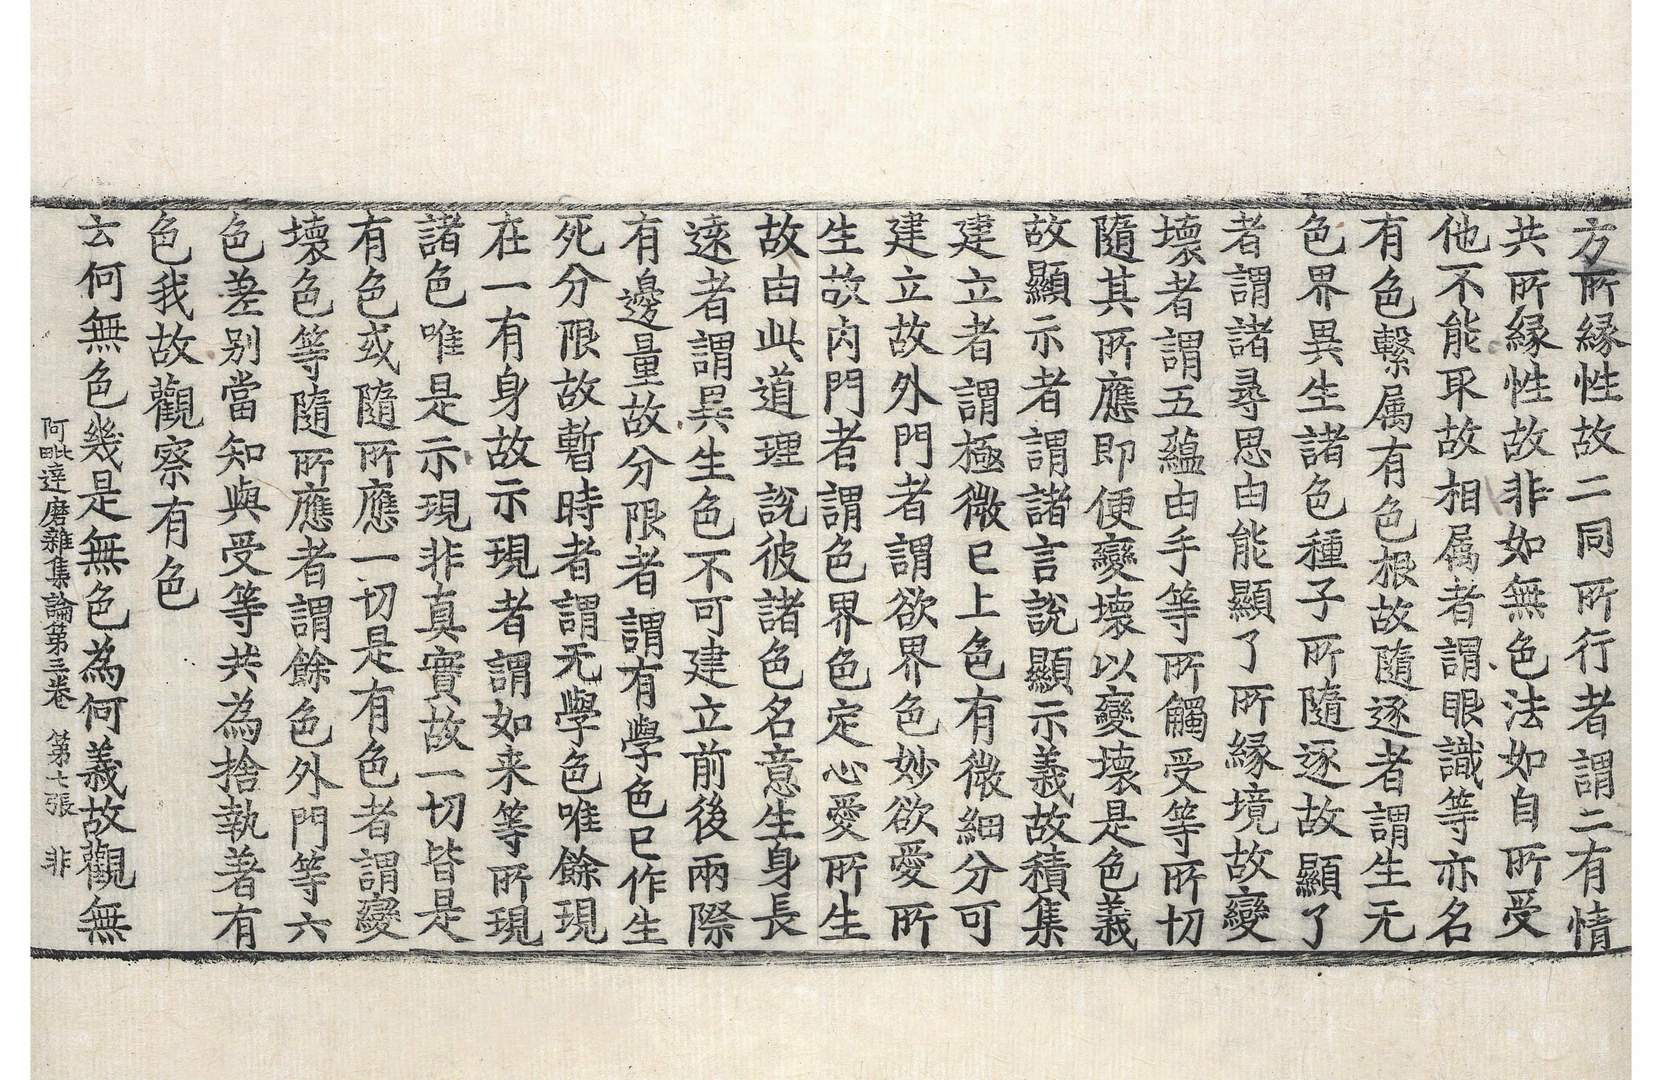 方所緣性故二同所行者謂二有情
共所緣性故非如無色法如自所受
他不能取故相属者謂眼識等亦名
有色繫属有色根故隨逐者謂生无
色界異生諸色種子所隨逐故顯了
者謂諸尋思由能顯了所緣境故變
壞者謂五蘊由手等所觸受等所切
隨其所應即便變壞以變壞是色義
故顯示者謂諸言說顯示義故積集
建立者謂極微已上色有微細分可
建立故外門者謂欲界色妙欲愛所
生故內門者謂色界色定心愛所生
故由此道理說彼諸色名意生身長
遠者謂異生色不可建立前後兩際
有邊量故分限者謂有學色已作生
死分限故暫時者謂无學色唯餘現
在一有身故示現者謂如来等所現
諸色唯是示現非真實故一切皆是
有色或隨所應一切是有色者謂變
壞色等隨所應者謂餘色外門等六
色差别當知與受等共為捨執著有
色我故觀察有色
云何無色幾是無色為何義故觀無
阿毗達磨雜集論第三卷 第七張 非